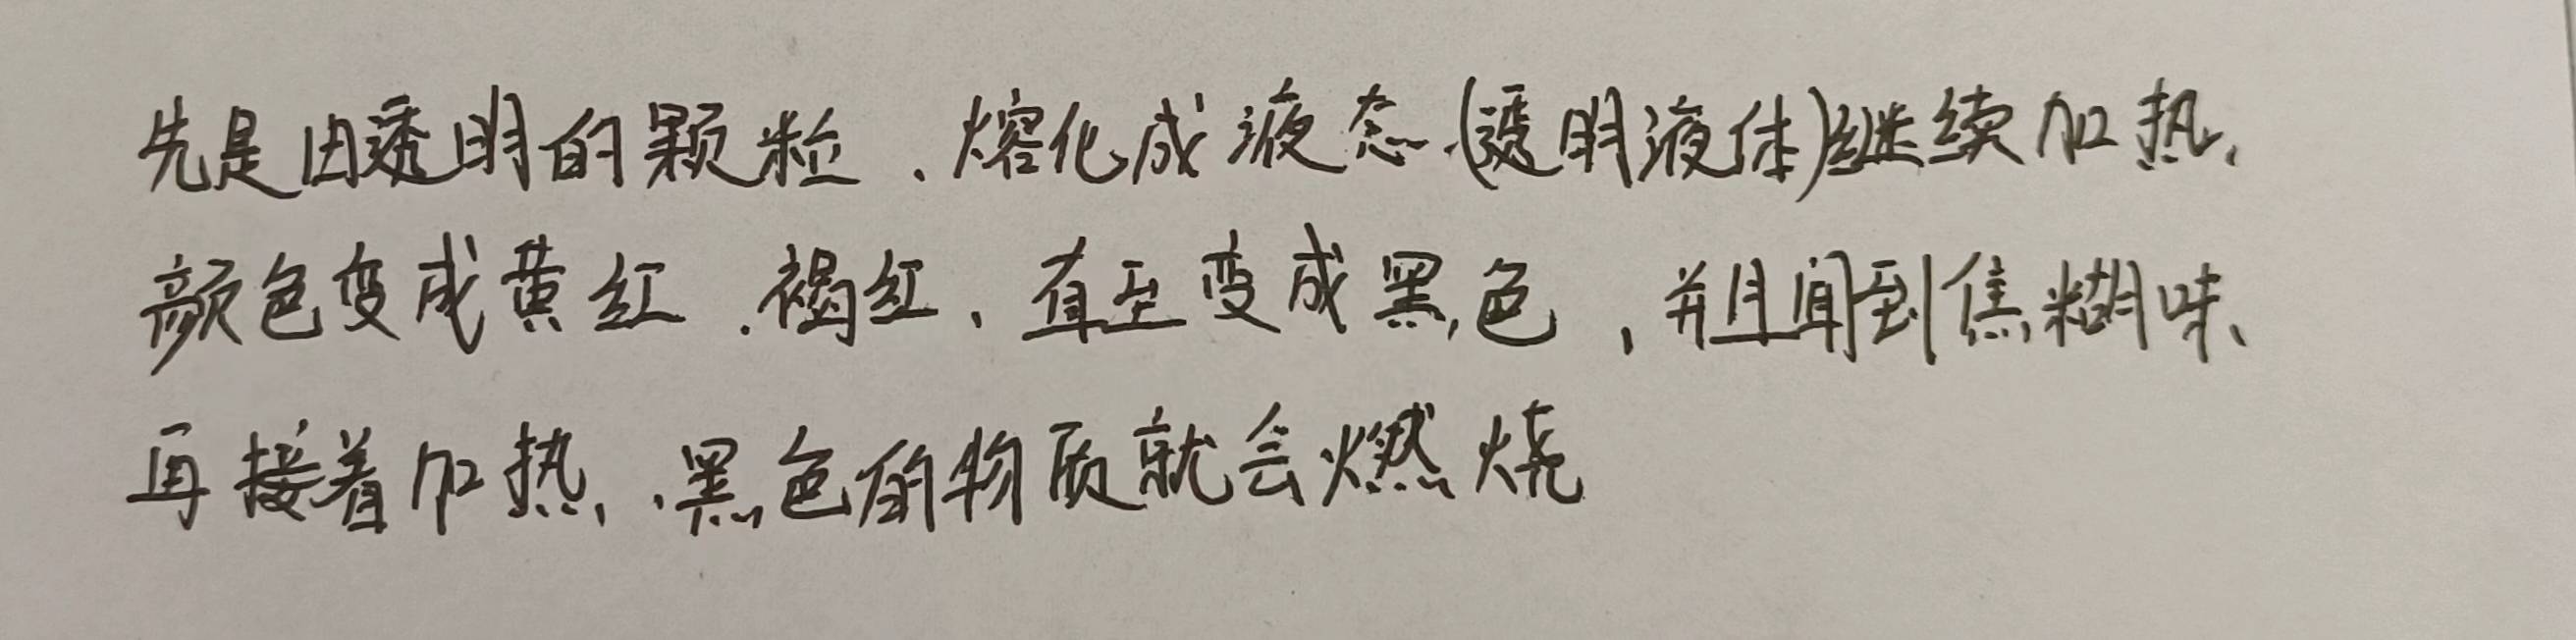 先是由透明的颗粒、熔化成液态(透明液体)继续加热、
颜色变成黄红、褐红、直至变成黑色，并且闻到焦糊味、
再接着加热、黑色的物质就会燃烧